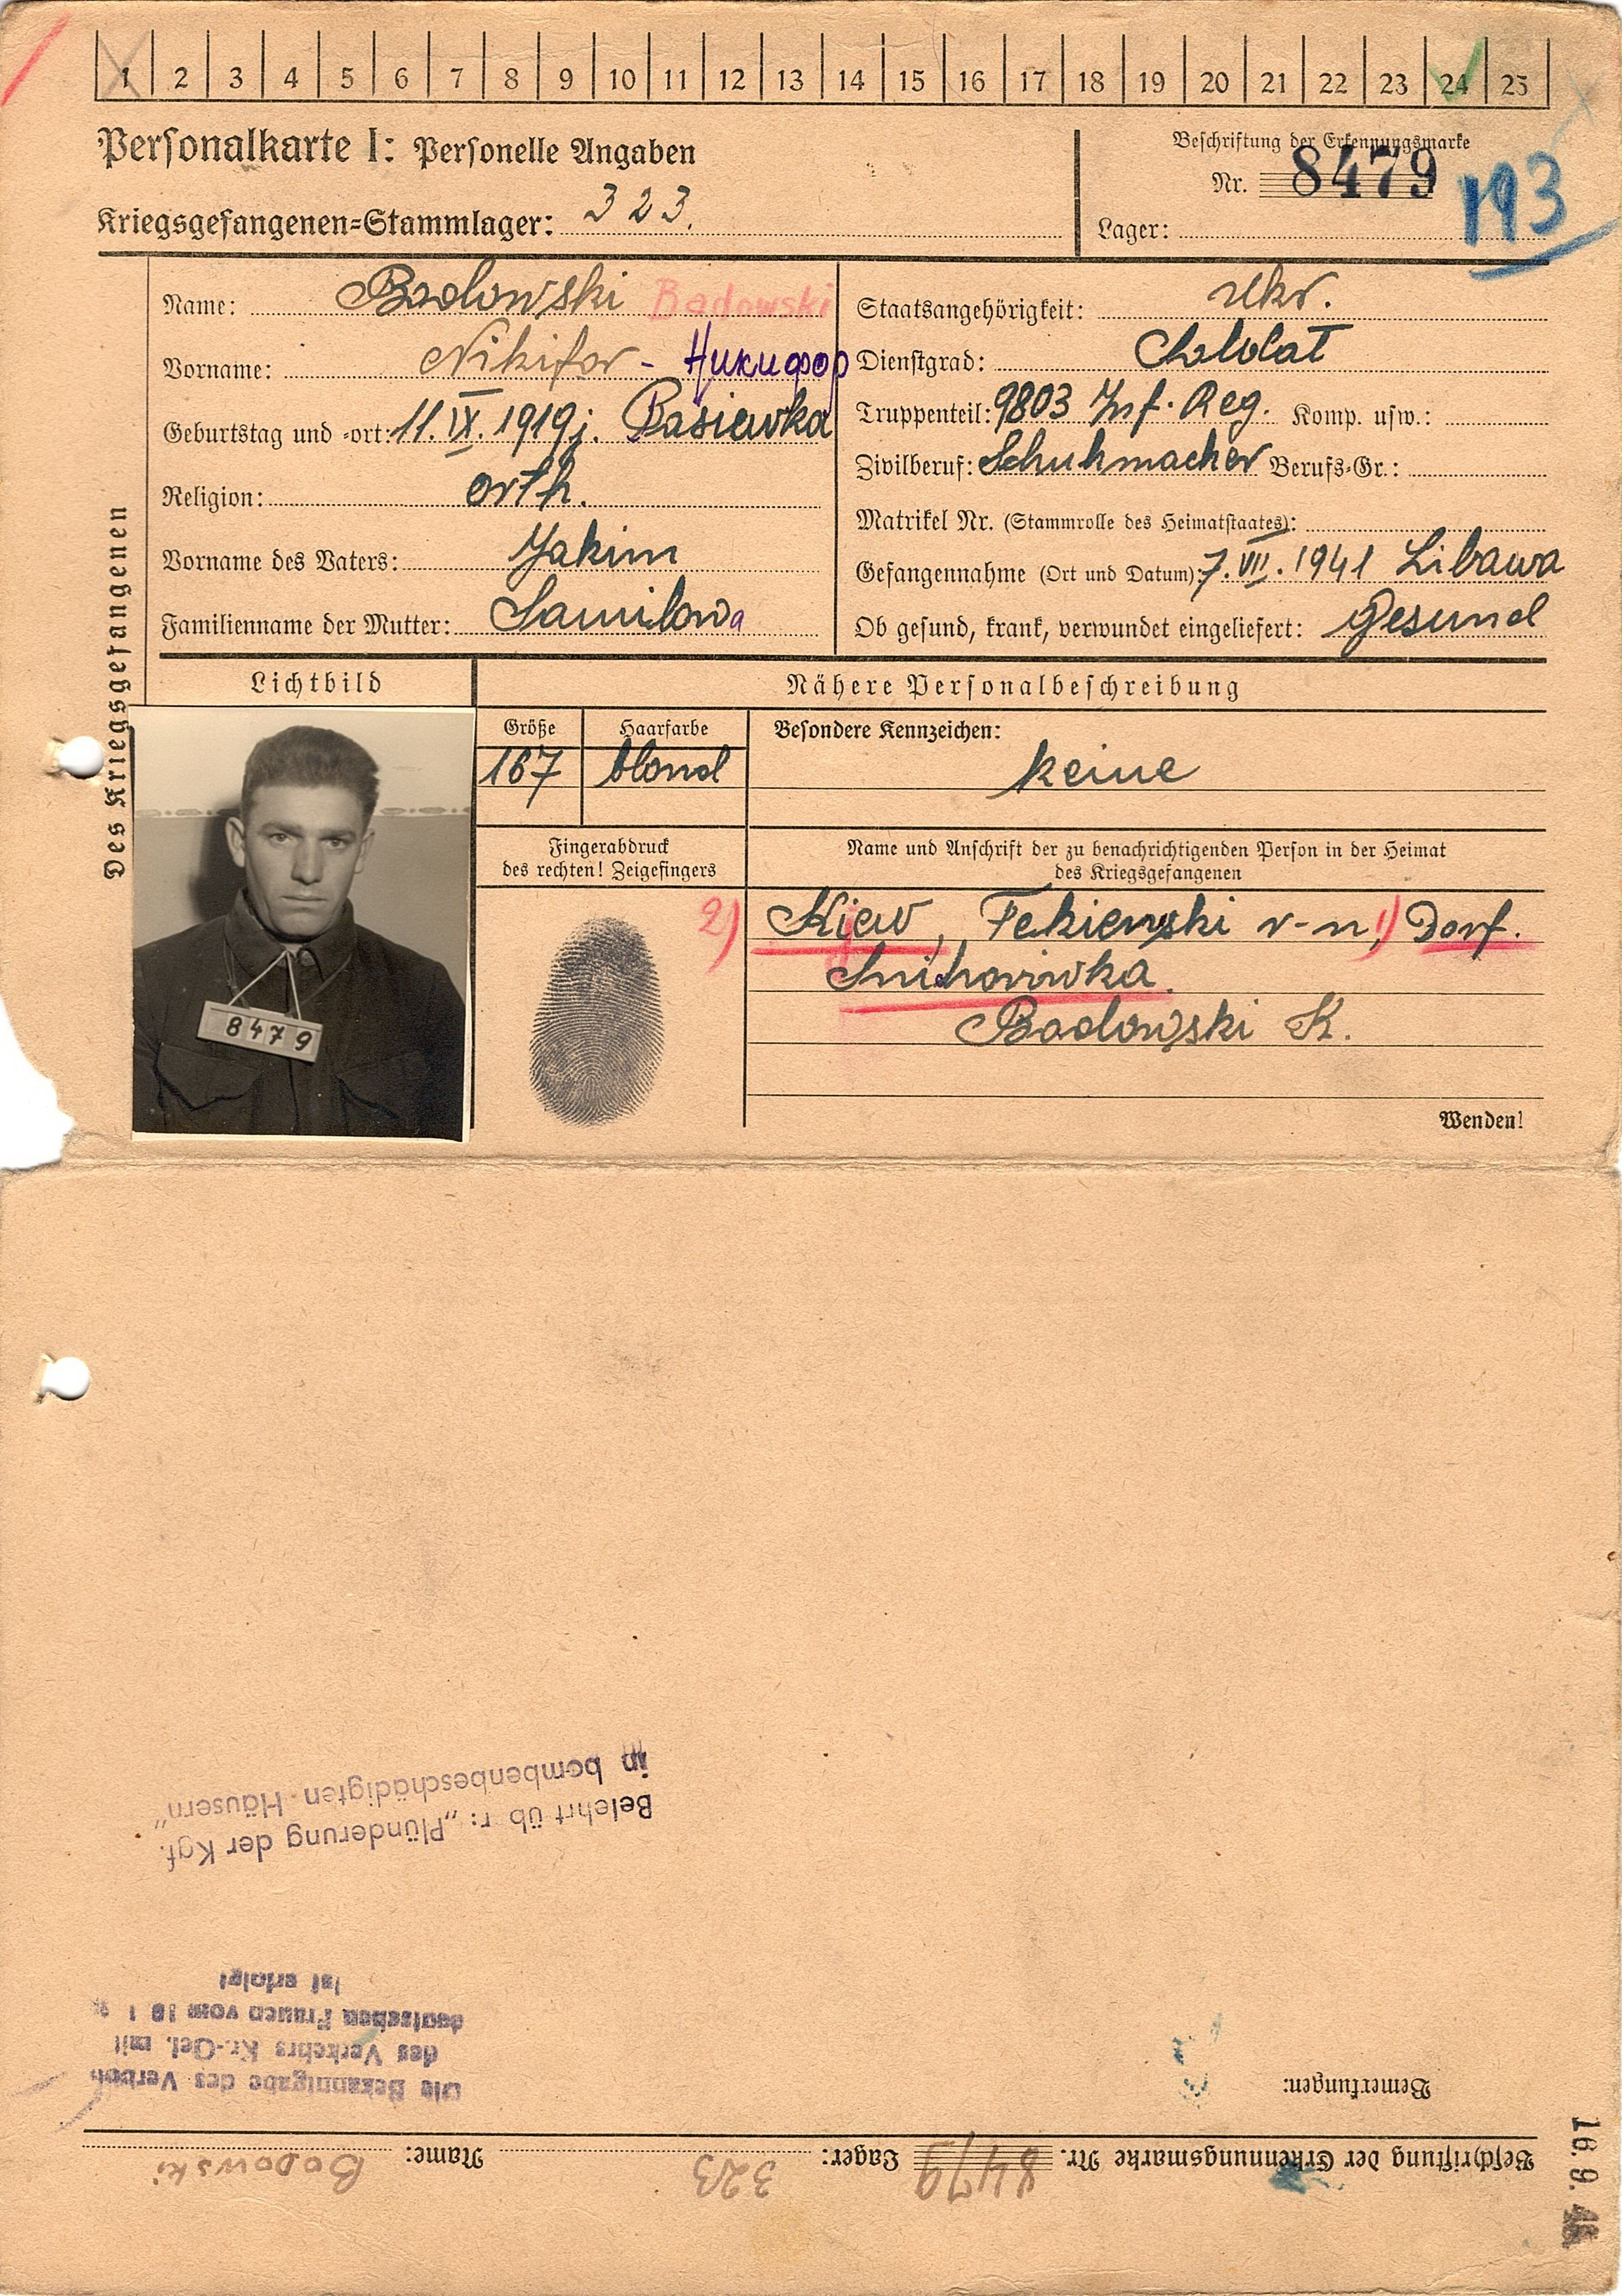 1 2 3 4 5 6 7 8 9 10 11 12 13 14 15 16 17 18 19 20 21 22 23 24 25
Personalkarte I: Personelle Angaben
Kriegsgefangenen-Stammlager: 323.
Beschriftung der Erkennungsmarke
Nr. 8479
193
Lager:
Des Kriegsgefangenen
Name: Badowski Badowski
Vorname: Nikifor - Никифор
Geburtstag und -ort: 11. IX. 1919 j. Basiewka
Religion: orth.
Vorname des Vaters: Jakim
Familienname der Mutter: Samilowa
Staatsangehörigkeit: Ukr.
Dienstgrad: Soldat
Truppenteil: 9803 Inf. Reg. Komp. usw.:
Zivilberuf: Schuhmacher Berufs-Gr.:
Matrikel Nr. (Stammrolle des Heimatstaates):
Gefangennahme (Ort und Datum): 7. VII. 1941 Libawa
Ob gesund, krank, verwundet eingeliefert: Gesund
Lichtbild
8479
Nähere Personalbeschreibung
Größe Haarfarbe Besondere Kennzeichen:
167 blond keine
Fingerabdruck
des rechten! Zeigefingers
Name und Anschrift der zu benachrichtigenden Person in der Heimat
des Kriegsgefangenen
2) Kiew, r-n, 1) Dorf.
Badowski K.
Wenden!
Beschriftung der Erkennungsmarke Nr. 8479 Lager: 323 Name: Badowski
Bemerkungen:
Die Bekanntgabe des Verbots
des Verkehrs Kr.-Gef. mit
deutschen Frauen vom
ist erfolgt
Belehrt üb r: „Plünderung der Kgf.
in bombenbeschädigten Häusern"
16. 9.